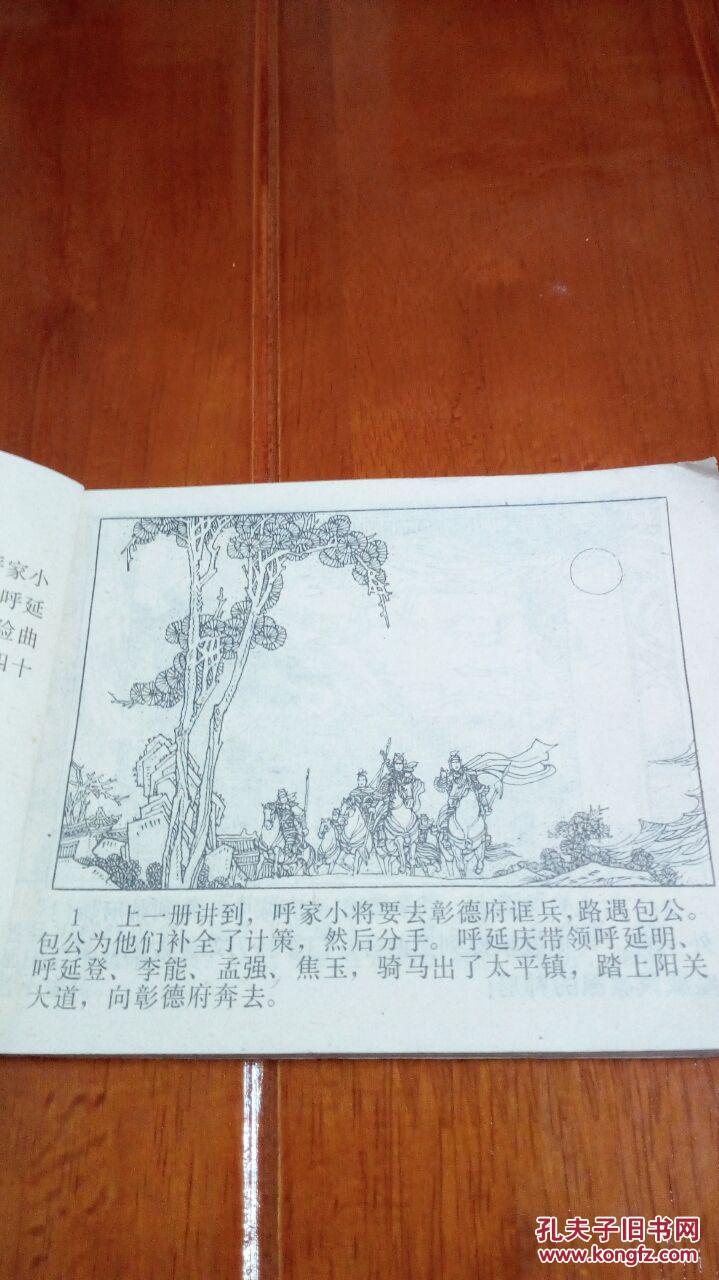 家小
呼延
险曲
四十
1 上一册讲到，呼家小将要去彰德府诓兵，路遇包公。
包公为他们补全了计策，然后分手。呼延庆带领呼延明、
呼延登、李能、孟强、焦玉，骑马出了太平镇，踏上阳关
大道，向彰德府奔去。
孔夫子旧书网
www.kongfz.com